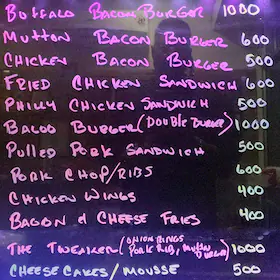 Buffalo Bacon Burger 1000
Mutton Bacon Burger 600
Chicken Bacon Burger 500
Fried Chicken Sandwich 600
Philly Chicken Sandwich 500
Baloo Burger (Double Burger) 1000
Pulled Pork Sandwich 500
Pork Chop/Ribs 600
Chicken Wings 400
Bacon & Cheese Fries 400
The Tweaker (Onion Rings, Pork Rib, Mutton Burger) 1000
Cheese Cakes/Mousse 500